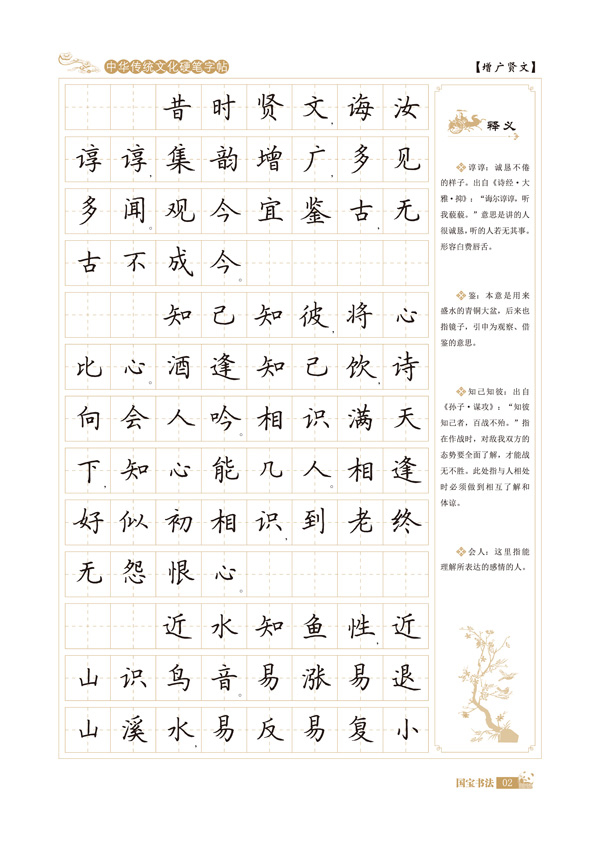 中华传统文化硬笔字帖
【增广贤文】
昔时贤文，诲汝
谆谆，集韵增广，多见
多闻。观今宜鉴古，无
古不成今。
知己知彼，将心
比心。酒逢知己饮，诗
向会人吟。相识满天
下，知心能几人。相逢
好似初相识，到老终
无怨恨心。
近水知鱼性，近
山识鸟音。易涨易退
山溪水，易反易复小
释义
谆谆：诚恳不倦
的样子。出自《诗经·大
雅·抑》：“诲尔谆谆，听
我藐藐。”意思是讲的人
很诚恳，听的人若无其事。
形容白费唇舌。
鉴：本意是用来
盛水的青铜大盆，后来也
指镜子，引申为观察、借
鉴的意思。
知己知彼：出自
《孙子·谋攻》：“知彼
知己者，百战不殆。”指
在作战时，对敌我双方的
态势要全面了解，才能战
无不胜。此处指与人相处
时必须做到相互了解和
体谅。
会人：这里指能
理解所表达的感情的人。
国宝书法 02